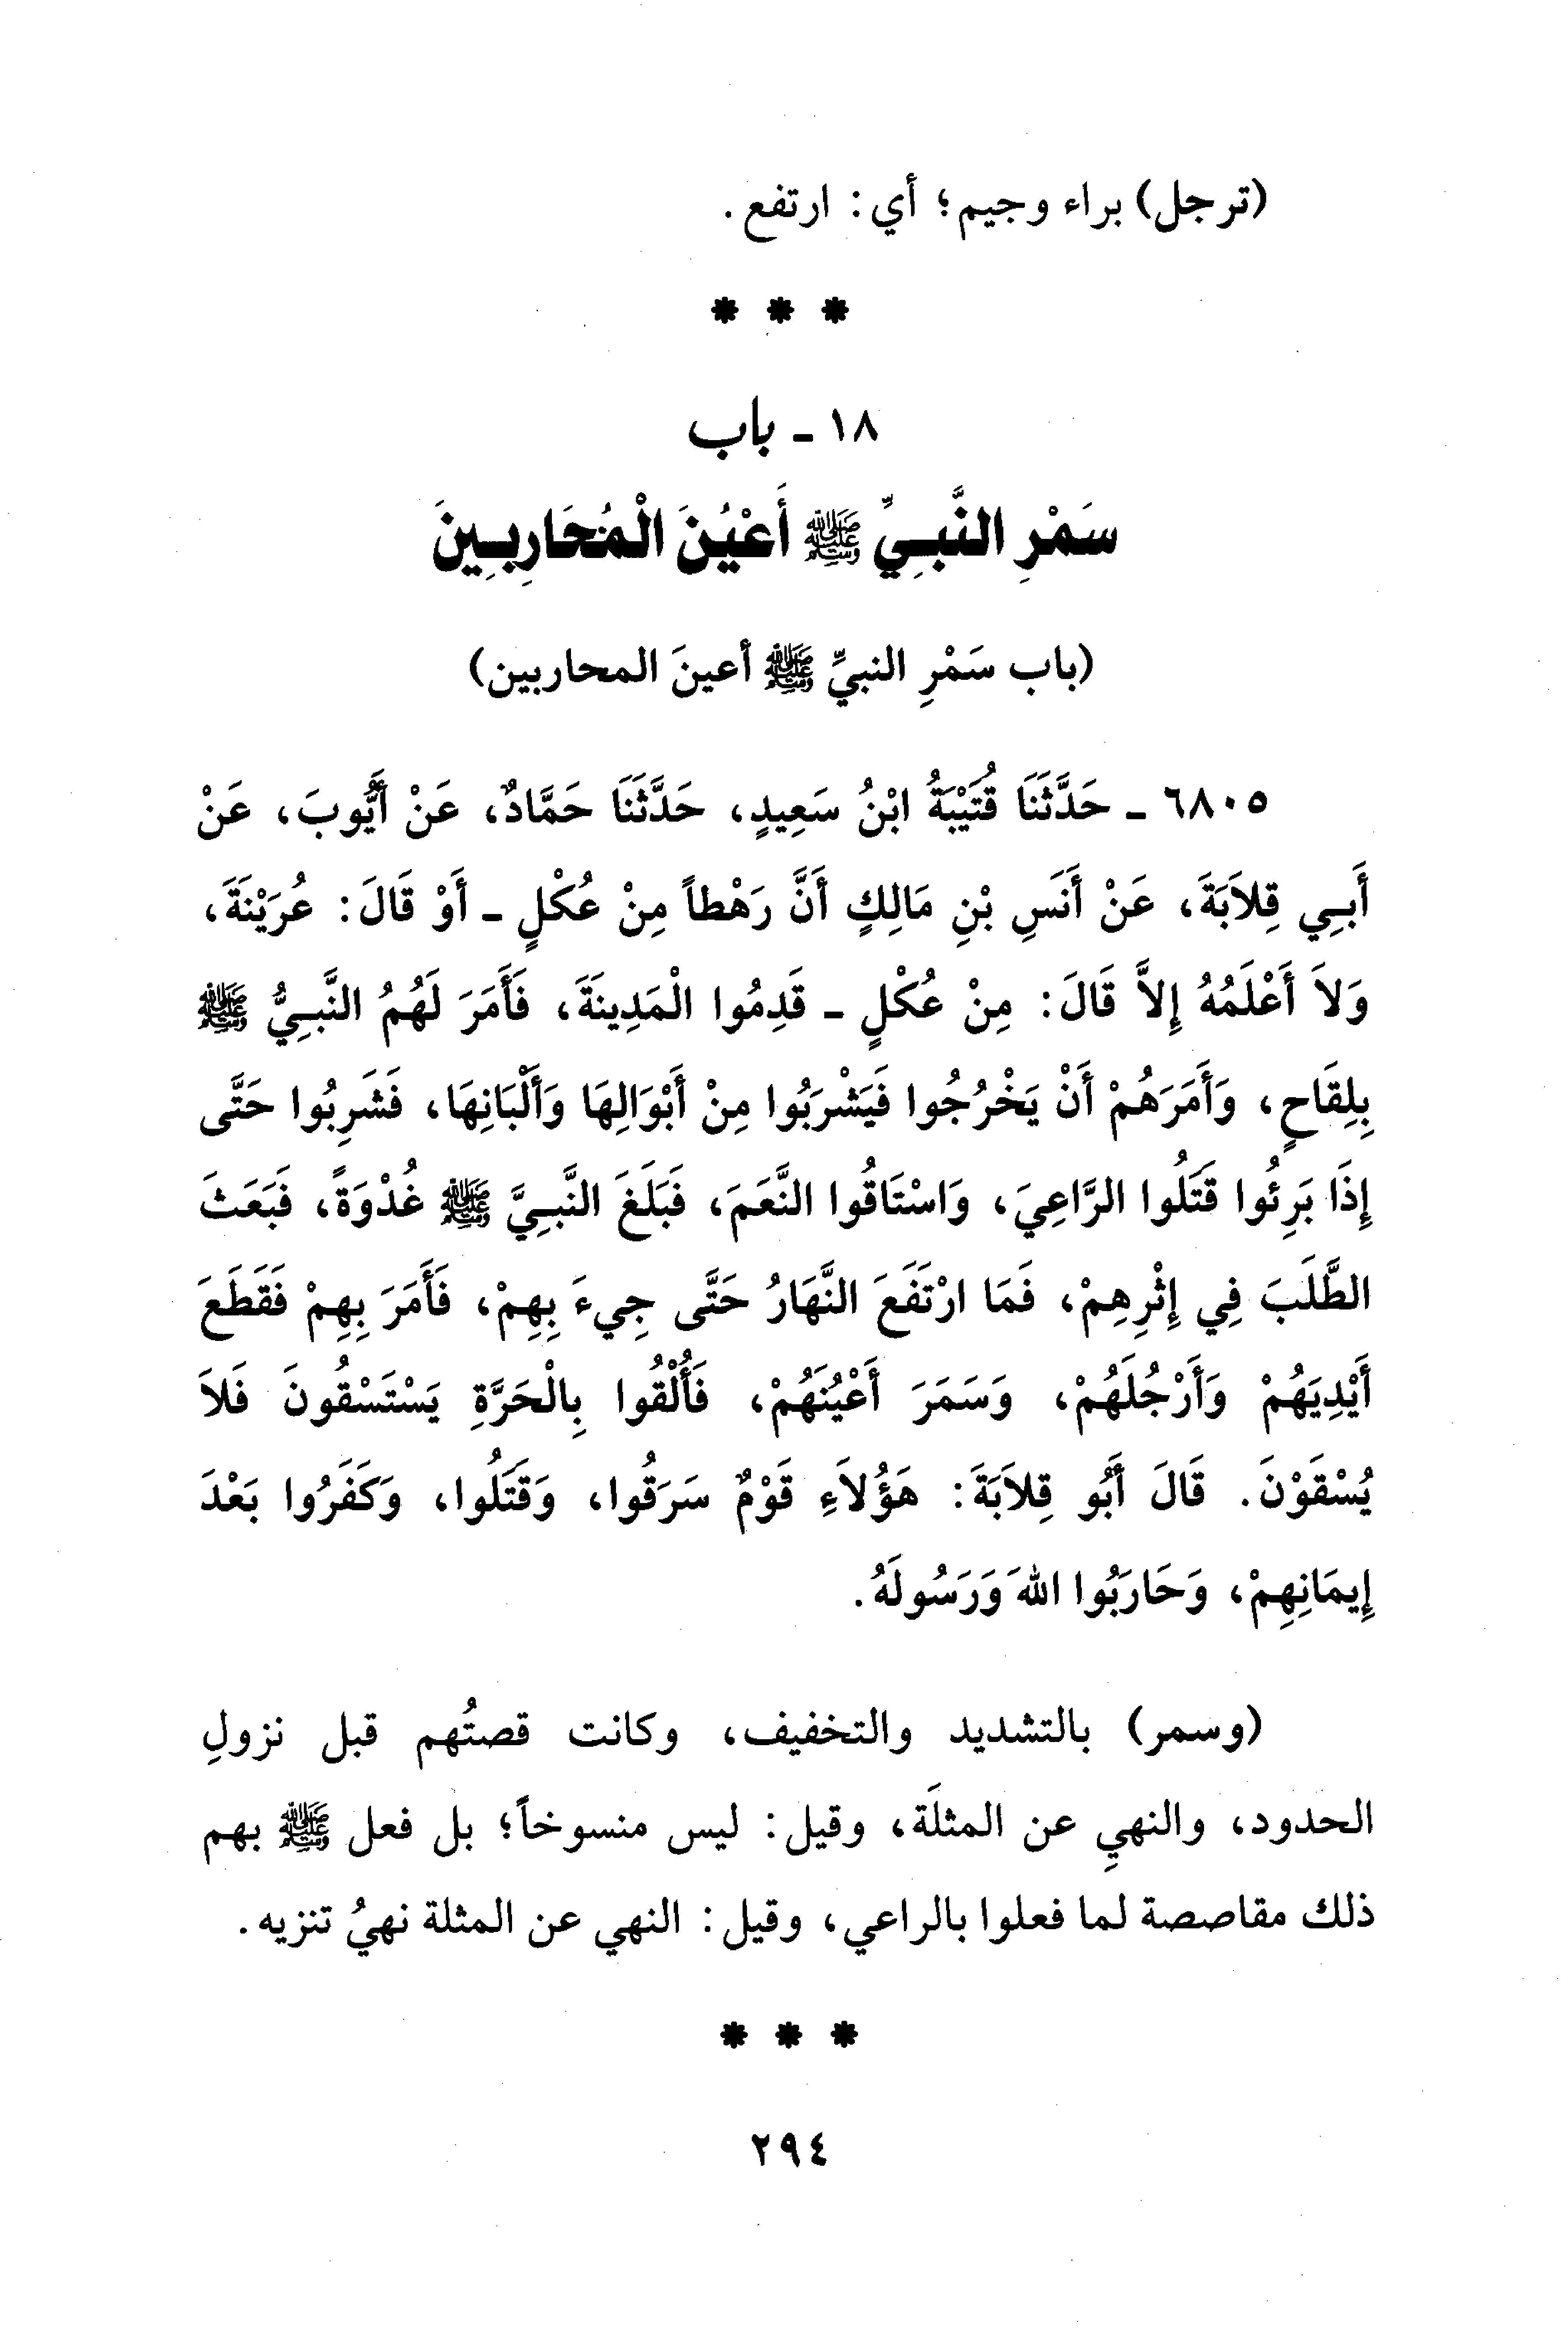 (ترجل) براء وجيم؛ أي: ارتفع.
* * *
١٨ - باب
سَمْرِ النَّبِيِّ ﷺ أَعْيُنَ الْمُحَارِبِينَ
(باب سَمْرِ النبيِّ ﷺ أعينَ المحاربين)
٦٨٠٥ - حَدَّثَنَا قُتَيْبَةُ ابْنُ سَعِيدٍ، حَدَّثَنَا حَمَّادٌ، عَنْ أَيُّوبَ، عَنْ
أَبِي قِلاَبَةَ، عَنْ أَنَسِ بْنِ مَالِكٍ أَنَّ رَهْطاً مِنْ عُكْلٍ - أَوْ قَالَ: عُرَيْنَةَ،
وَلاَ أَعْلَمُهُ إِلاَّ قَالَ: مِنْ عُكْلٍ - قَدِمُوا الْمَدِينَةَ، فَأَمَرَ لَهُمُ النَّبِيُّ ﷺ
بِلِقَاحٍ، وَأَمَرَهُمْ أَنْ يَخْرُجُوا فَيَشْرَبُوا مِنْ أَبْوَالِهَا وَأَلْبَانِهَا، فَشَرِبُوا حَتَّى
إِذَا بَرِئُوا قَتَلُوا الرَّاعِيَ، وَاسْتَاقُوا النَّعَمَ، فَبَلَغَ النَّبِيَّ ﷺ غُدْوَةً، فَبَعَثَ
الطَّلَبَ فِي إِثْرِهِمْ، فَمَا ارْتَفَعَ النَّهَارُ حَتَّى جِيءَ بِهِمْ، فَأَمَرَ بِهِمْ فَقَطَعَ
أَيْدِيَهُمْ وَأَرْجُلَهُمْ، وَسَمَرَ أَعْيُنَهُمْ، فَأُلْقُوا بِالْحَرَّةِ يَسْتَسْقُونَ فَلاَ
يُسْقَوْنَ. قَالَ أَبُو قِلاَبَةَ: هَؤُلاَءِ قَوْمٌ سَرَقُوا، وَقَتَلُوا، وَكَفَرُوا بَعْدَ
إِيمَانِهِمْ، وَحَارَبُوا اللهَ وَرَسُولَهُ.
(وسمر) بالتشديد والتخفيف، وكانت قصتُهم قبل نزولِ
الحدود، والنهيِ عن المثلَة، وقيل: ليس منسوخاً؛ بل فعل ﷺ بهم
ذلك مقاصصة لما فعلوا بالراعي، وقيل: النهي عن المثلة نهيُ تنزيه.
* * *
٢٩٤